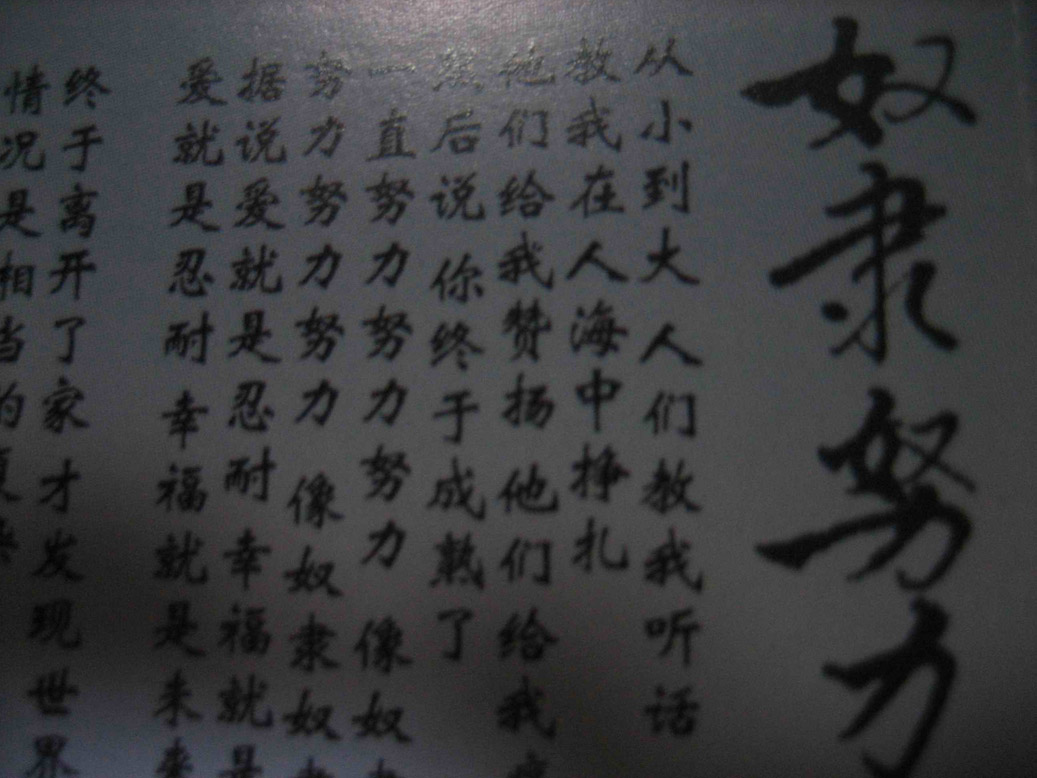 奴隶努力
从小到大人们教我听话
教我在人海中挣扎
他们给我赞扬他们给我
然后说 你终于成熟了
一直努力努力努力 像奴
努力努力努力 像奴隶奴
据说爱就是忍耐 幸福就是
爱就是忍耐 幸福就是未来
终于离开了家才发现世界
情况是相当的复杂